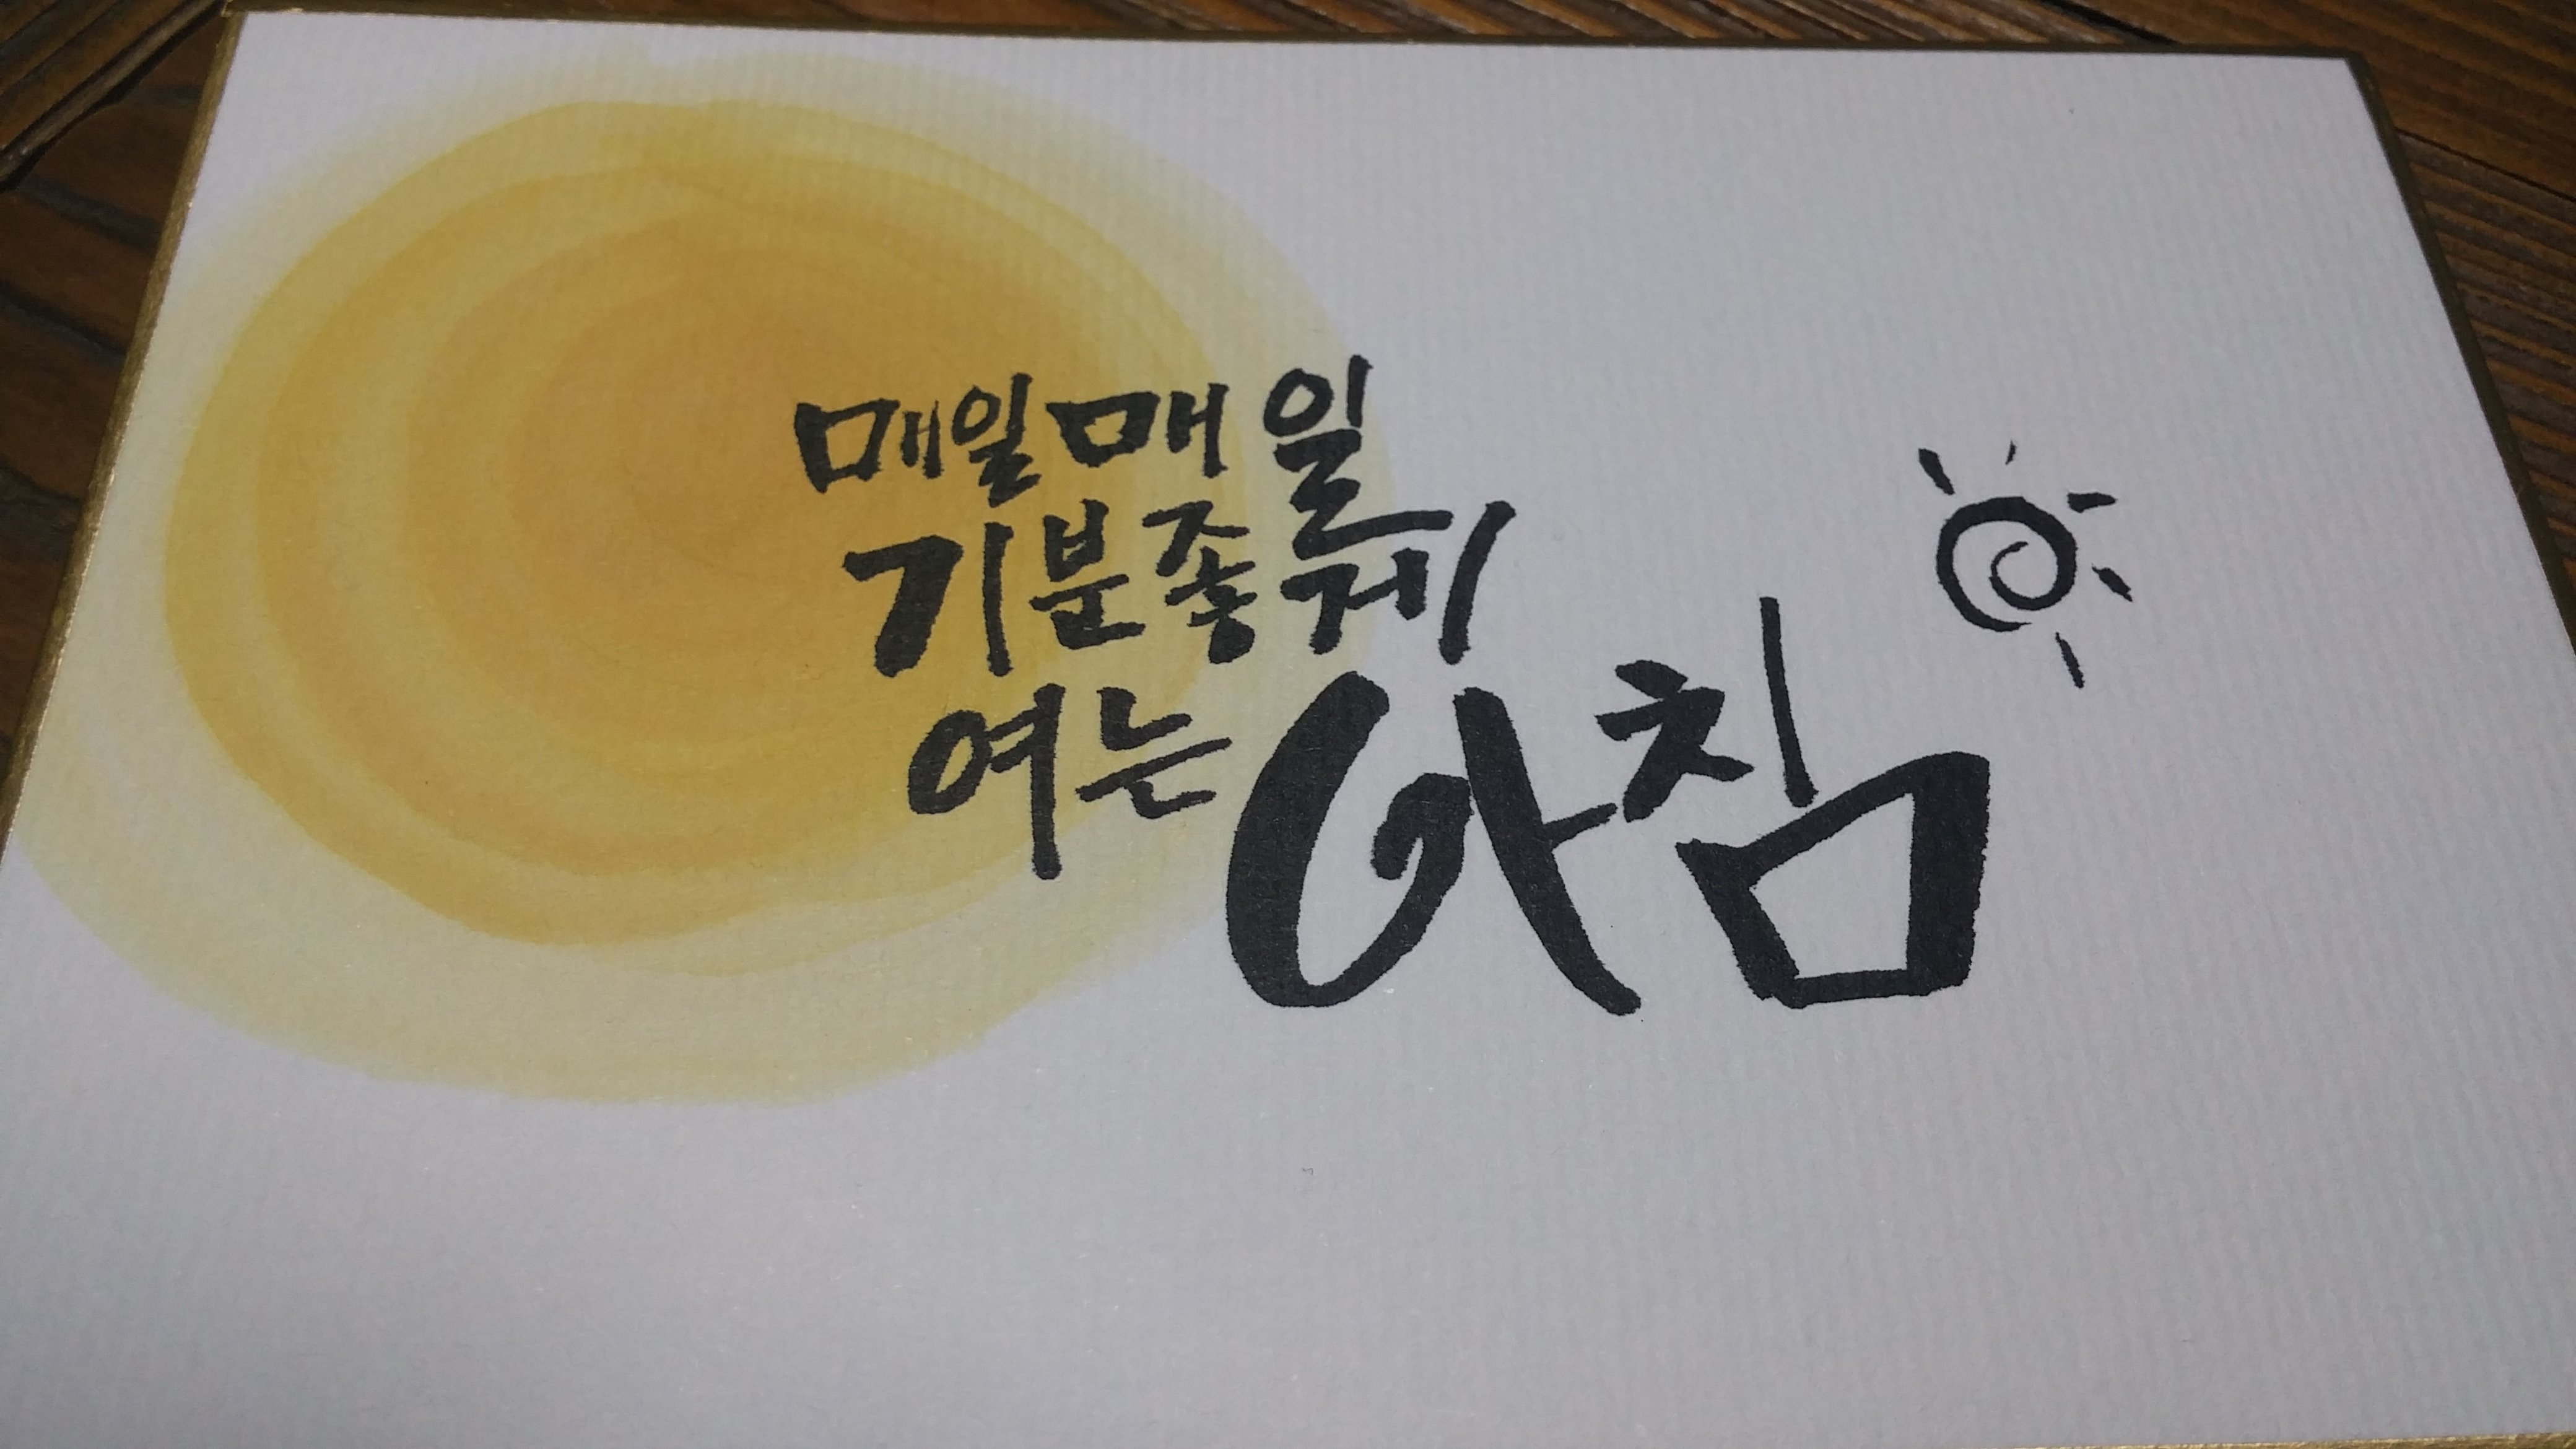 매일매일
기분좋게
여는 아침